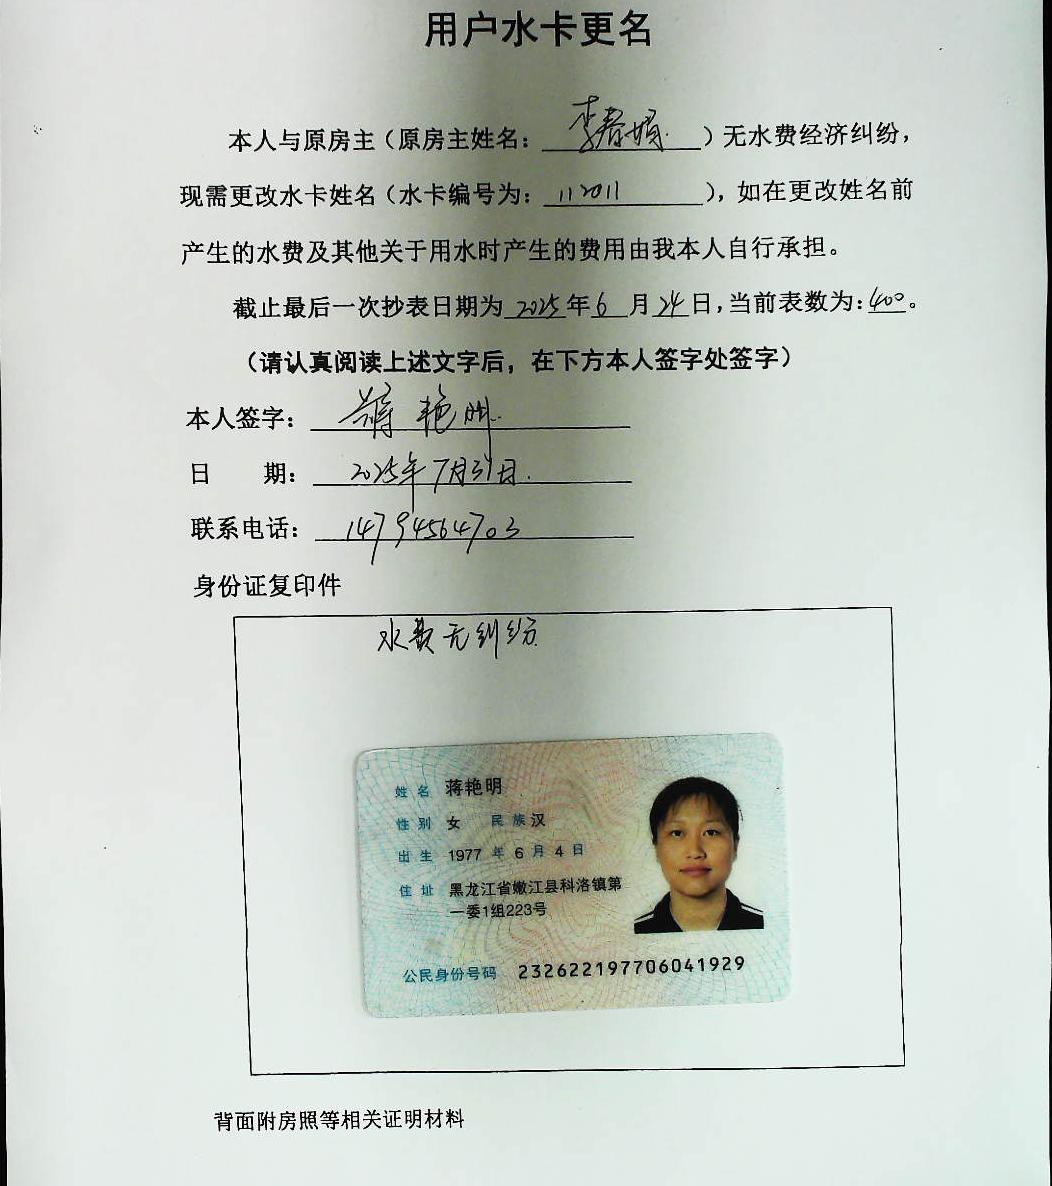 用户水卡更名
本人与原房主（原房主姓名：李春娟）无水费经济纠纷，
现需更改水卡姓名（水卡编号为：112011），如在更改姓名前
产生的水费及其他关于用水时产生的费用由我本人自行承担。
截止最后一次抄表日期为2025年6月24日，当前表数为：400。
（请认真阅读上述文字后，在下方本人签字处签字）
本人签字：蒋艳明
日 期：2025年7月31日.
联系电话：14794564703
身份证复印件
水费无纠纷
姓名 蒋艳明
性别 女 民族 汉
出生 1977年6月4日
住址 黑龙江省嫩江县科洛镇第
一委1组223号
公民身份号码 232622197706041929
背面附房照等相关证明材料